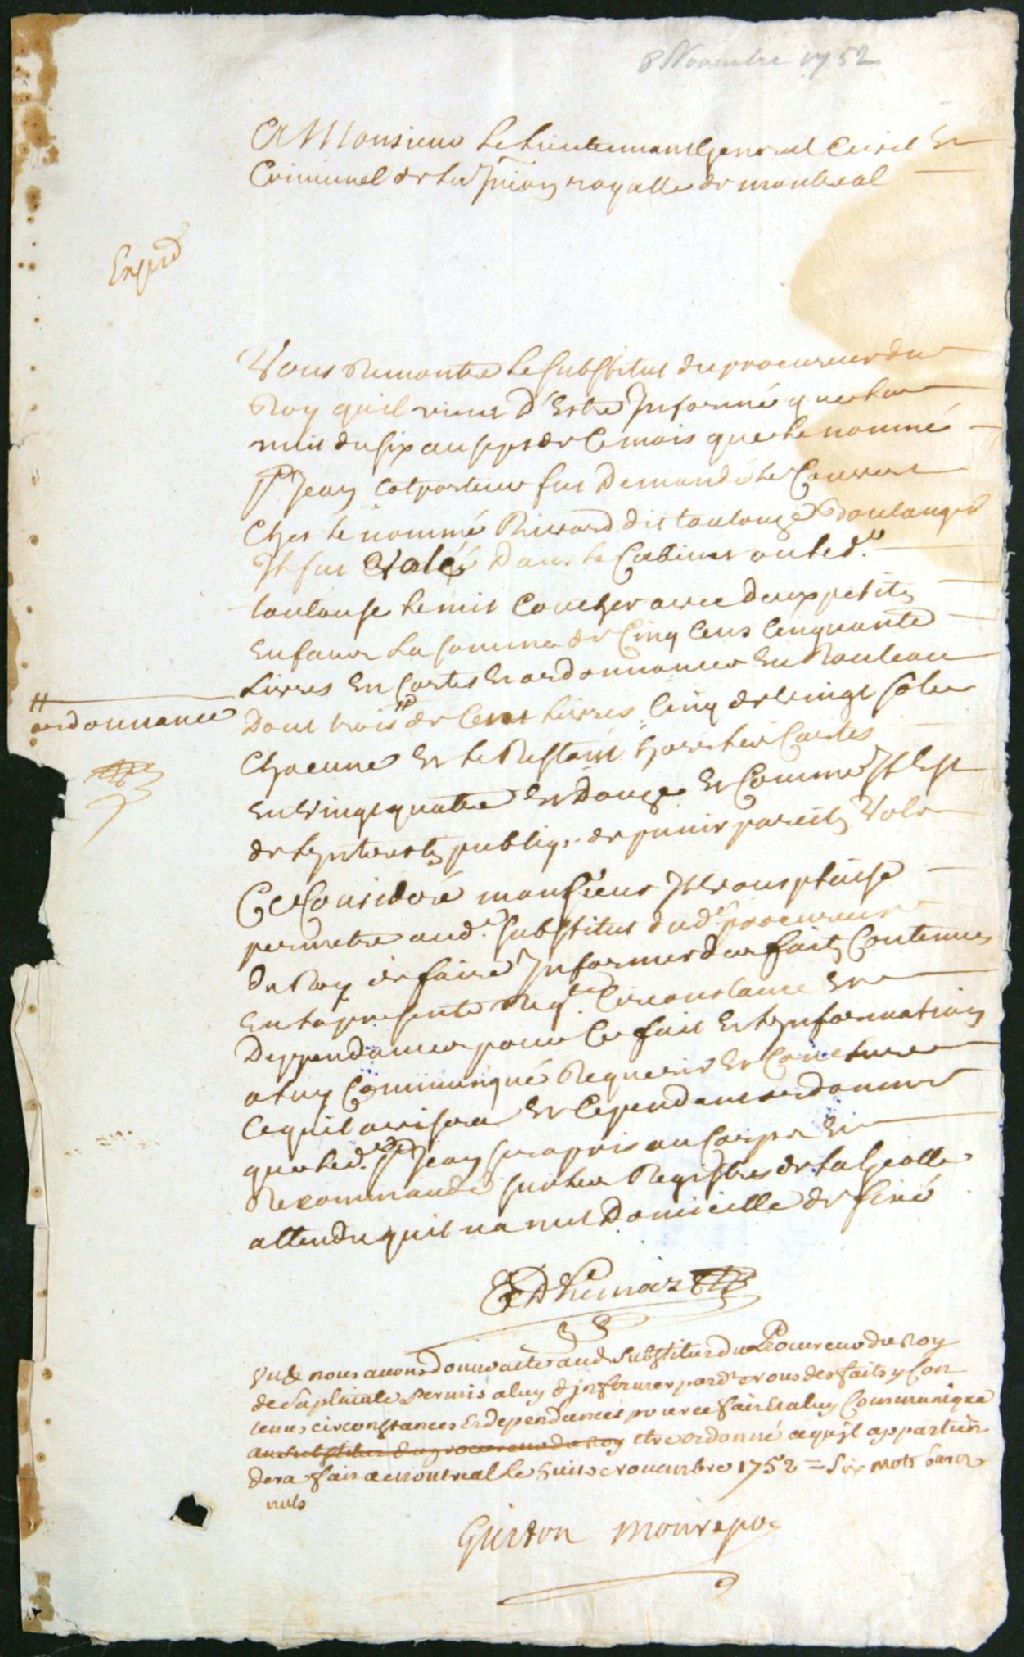 8 Novembre 1752
A Monsieur Le Lieutenant General Civil Et
Criminel de la Juri.on royalle de montreal
Exped
Vous Remontre Le Substitut du procureur du
Roy quil vient d'Estre Informé que la
nuit du six au sept de Ce mois que le nommé
Jean Colporteur fut Demandé Le Couvert
Ches le nommé Rivard dit toulouze Boulanger
Il fut volé Dans le Cabinet ou led.t
toulouse le mit Coucher avec deux petits
Enfans La somme de Cinq Cens Cinquante
Livres En Cartes Et ordonnances En Rouleau
ordonnance
Dont trois # de Cent Livres Cinq de Vingt sols
Chacune Et le Restant
En Vingt quatre Et Douze Et Comme Il Est
de Linterests publiq. de punir pareils Vols
Ce Consideré monsieur Il vous plaise
permetre aud.t Substitut dud.t procureur
du Roy de faire Informer des faits Contenus
En la presente Reqte. Circonstance Et
Deppendances pour Ce fait Et Linformation
a luy Communiqué Requerir Et Conclure
Ce quil avisera Et Cependant ordonner
que led. Jean sera pris au Corps Et
Recommandé sur les Registres de la Geolle
attendu quil na nul Domicille de fixé
Vu & nous avons donné acte aud Substitut du Procureur du Roy
de sa plainte permis a luy d'informer pard.t vous des faits y Con
tenus circonstances Et dependances pour ce fait Et a luy Communique
au substitut du procureur du Roy etre ordonné ce qu'il appartien
dera fait a montreal le huit novembre 1752 = Six mots barés
nuls
Guiton Monrepos